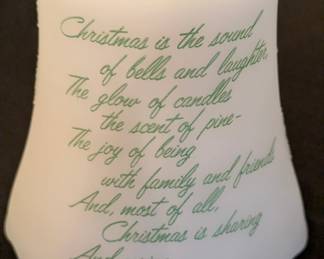 Christmas is the sound
of bells and laughter,
The glow of candles
the scent of pine-
The joy of being
with family and friends
And, most of all,
Christmas is sharing
And